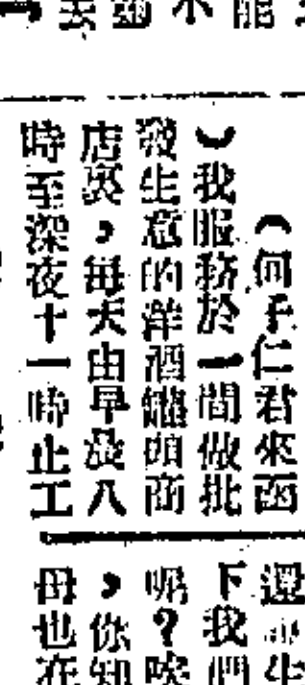 （何手仁君來函
）我服務於一間做批
發生意的洋酒罐頭商
店裏，每天由早晨八
時至深夜十一時止工
還
下我們
呢？唉
，你知
母也在